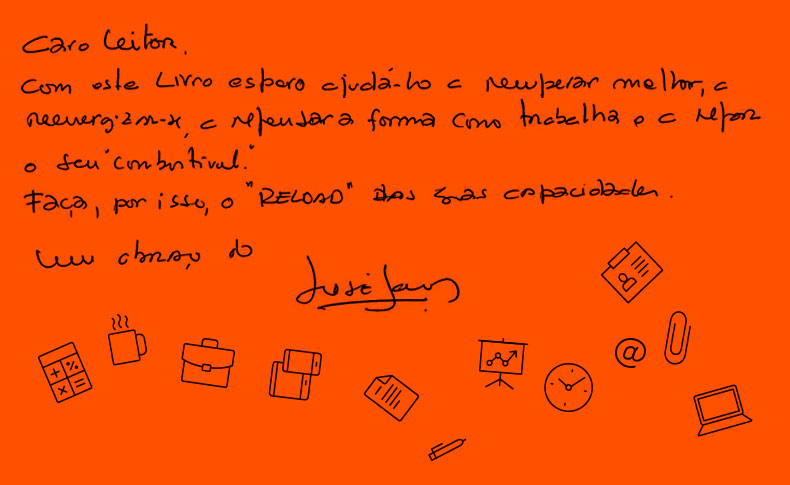 Caro leitor,
com este livro espero ajudá-lo a recuperar melhor, a
reenergizar-se, a repensar a forma como trabalha e a repor
o seu "combustível."
Faça, por isso, o "RELOAD" das suas capacidades.
um abraço do
José